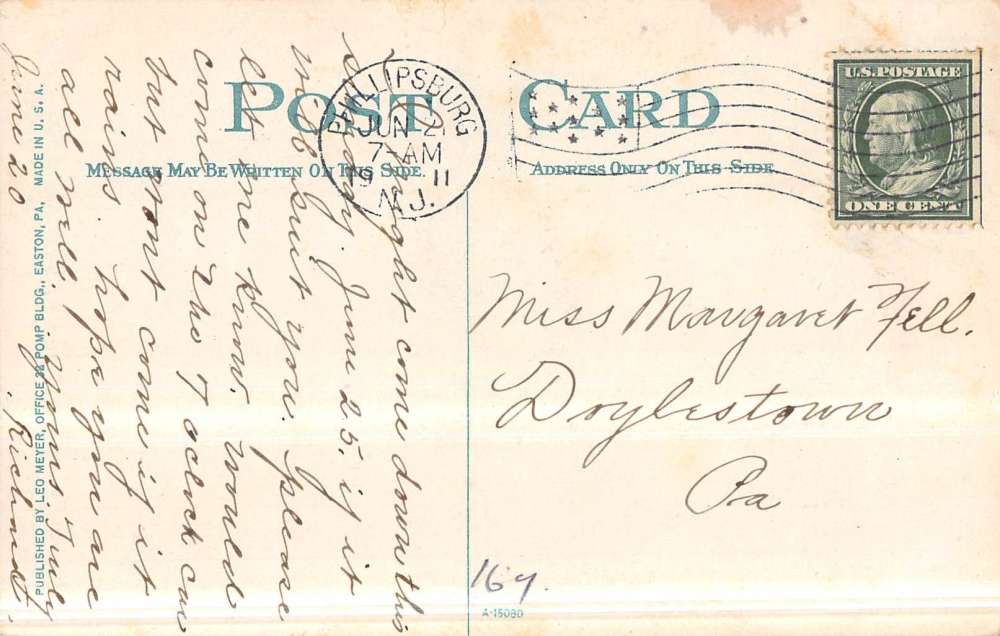 POST CARD
MESSAGE MAY BE WRITTEN ON THIS SIDE.
ADDRESS ONLY ON THIS SIDE.
PHILLIPSBURG
JUN 21
7-AM
19 11
N.J.
U.S. POSTAGE
ONE CENT
I might come down this
Sunday. June 25, if it
will suit you. please
let me know. would
come on the 7 oclock car
but wont come if it
rains. hope you are
all well. Yours Truly
June 20 Richard.
Miss Margaret Fell.
Doylestown
Pa
167.
A-15080
PUBLISHED BY LEO MEYER, OFFICE POMP BLDG., EASTON, PA, MADE IN U.S.A.